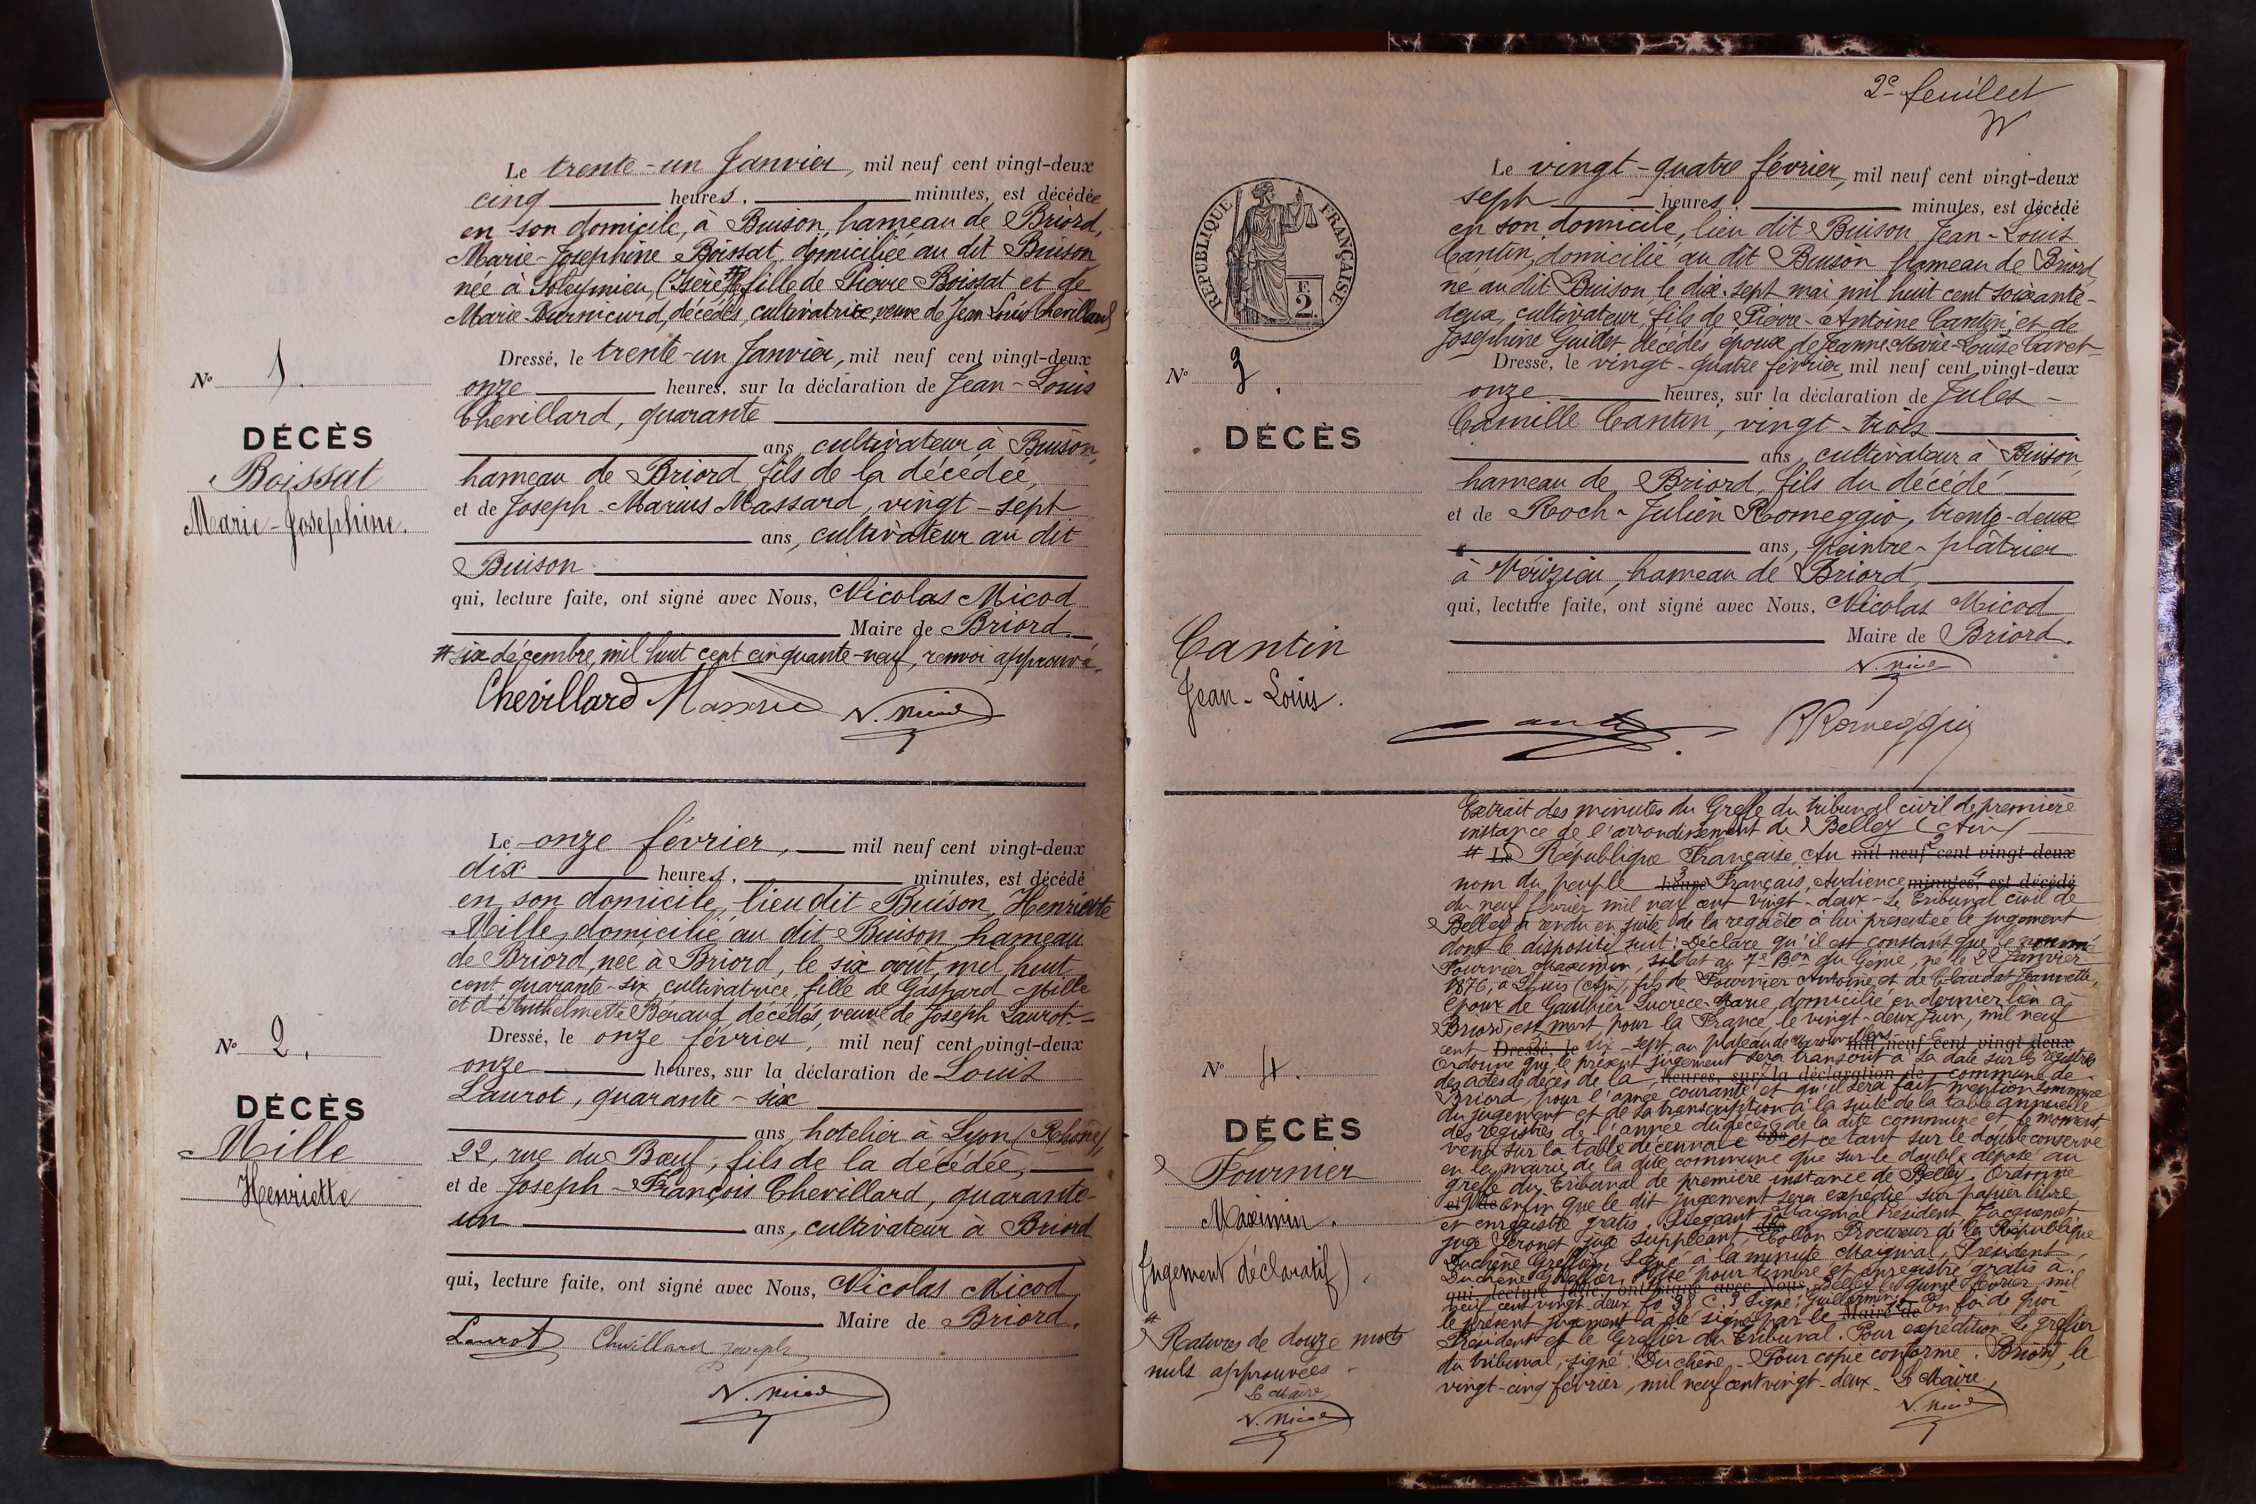 Le trente-un Janvier, mil neuf cent vingt-deux
cinq heures, minutes, est décédée
en son domicile, à Buison, hameau de Briord,
Marie-Josephine Boissat, domiciliée au dit Buison
née à Soleymieu, (Isère) # fille de Pierre Boissat et de
Marie décédés, cultivatrice, veuve de Jean Louis Chevillard
Dressé, le trente-un Janvier, mil neuf cent vingt-deux
onze heures, sur la déclaration de Jean-Louis
Chevillard, quarante
ans, cultivateur à Buison,
hameau de Briord, fils de la décédée,
et de Joseph-Marius Massard, vingt-sept
ans, cultivateur au dit
Buison
qui, lecture faite, ont signé avec Nous, Nicolas Micod
Maire de Briord.
# six décembre, mil huit cent cinquante-neuf, renvoi approuvé.
Chevillard Massard N. Micod
No 1.
DÉCÈS
Boissat
Marie-Josephine.
Le onze février, mil neuf cent vingt-deux
dix heures, minutes, est décédé
en son domicile, lieu dit Buison, Henriette
Mille, domicilié au dit Buison, hameau
de Briord, née à Briord, le six aout, mil huit
cent quarante-six, cultivatrice, fille de Gaspard Mille
et d'Anthelmette Bénaud, décédés, veuve de Joseph Laurot.
Dressé, le onze février, mil neuf cent vingt-deux
onze heures, sur la déclaration de Louis
Laurot, quarante-six
ans, hotelier à Lyon (Rhône),
22, rue du Bœuf, fils de la décédée,
et de Joseph-François Chevillard, quarante-
un ans, cultivateur à Briord
qui, lecture faite, ont signé avec Nous, Nicolas Micod
Maire de Briord.
Laurot Chevillard Joseph
N. Micod
No 2.
DÉCÈS
Mille
Henriette
2e feuillet
N
RÉPUBLIQUE FRANÇAISE
F.
2.
Le vingt-quatre février, mil neuf cent vingt-deux
sept heures, minutes, est décédé
en son domicile, lieu dit Buison Jean-Louis
Cantin, domicilié au dit Buison hameau de Briord
né au dit Buison, le dix-sept mai mil huit cent soixante-
deux, cultivateur, fils de Pierre-Antoine Cantin, et de
Josephine Guillet décédés époux de Jeanne Marie-Louise Cavet
Dressé, le vingt-quatre février, mil neuf cent vingt-deux
onze heures, sur la déclaration de Jules-
Camille Cantin, vingt-trois
ans, cultivateur à Buison,
hameau de Briord, fils du décédé
et de Roch-Julien Romeggio, trente-deux
ans, peintre-plâtrier
à Vérizieu, hameau de Briord,
qui, lecture faite, ont signé avec Nous, Nicolas Micod
Maire de Briord.
N. Micod
R Romeggio
No 3.
DÉCÈS
Cantin
Jean-Louis.
Extrait des minutes du Greffe du tribunal civil de première
instance de l'arrondissement de Belley (Ain)
# Le République Française, Au mil neuf cent vingt-deux
nom du peuple heure Français, Audience minutes, est décédé
du neuf février mil neuf cent vingt-deux - Le Tribunal civil de
Belley a rendu en suite de la requête à lui présentée le jugement
dont le dispositif suit : Déclare qu'il est constant que le nommé
Fournier Maximin, soldat au 7e Bon du Génie, né le 22 Janvier
1876, à Lhuis (Ain), fils de Fournier Antoine et de Claudat Jeannette,
époux de Gauthier Lucrece-Marie, domicilié en dernier lieu à
Briord, est mort pour la France, le vingt-deux Juin, mil neuf
cent Dressé, le dix-sept au plateau de mil neuf cent vingt-deux
Ordonne que le présent jugement sera transcrit à sa date sur les registres
des actes de décès de la heures, sur la déclaration de commune de
Briord, pour l'année courante et qu'il sera fait mention sommaire
du jugement et de sa transcription à la suite de la table annuelle
des registres de l'année du décès de la dite commune et le moment
venu sur la table décennale ans et ce tant sur le double conservé
en la mairie de la dite commune que sur le double déposé au
greffe du Tribunal de première instance de Belley. Ordonne
et de enfin que le dit jugement sera expédié sur papier libre
et enregistré gratis. Siegeant Maignal Président Jacquemet
juge Peronet juge suppléant, ans Procureur de la République
Duchêne Greffier. Signé à la minute Maignal, Président,
Duchêne Greffier, Visé pour timbre et enregistré gratis à
qui, lecture faite, ont signé avec Nous, Belley le quinze février mil
neuf cent vingt-deux fo 38 C. 3 Signé: Guillermin. En foi de quoi
le présent jugement a été signé par le Maire de
Président et le Greffier du Tribunal. Pour expédition Le greffier
du tribunal, signé: Duchêne - Pour copie conforme. Briord, le
vingt-cinq février, mil neuf cent vingt-deux. Le Maire,
N. Micod
No 4.
DÉCÈS
Fournier
Maximin.
(Jugement déclaratif).
# Ratures de douze mots
nuls approuvées -
Le Maire
N. Micod